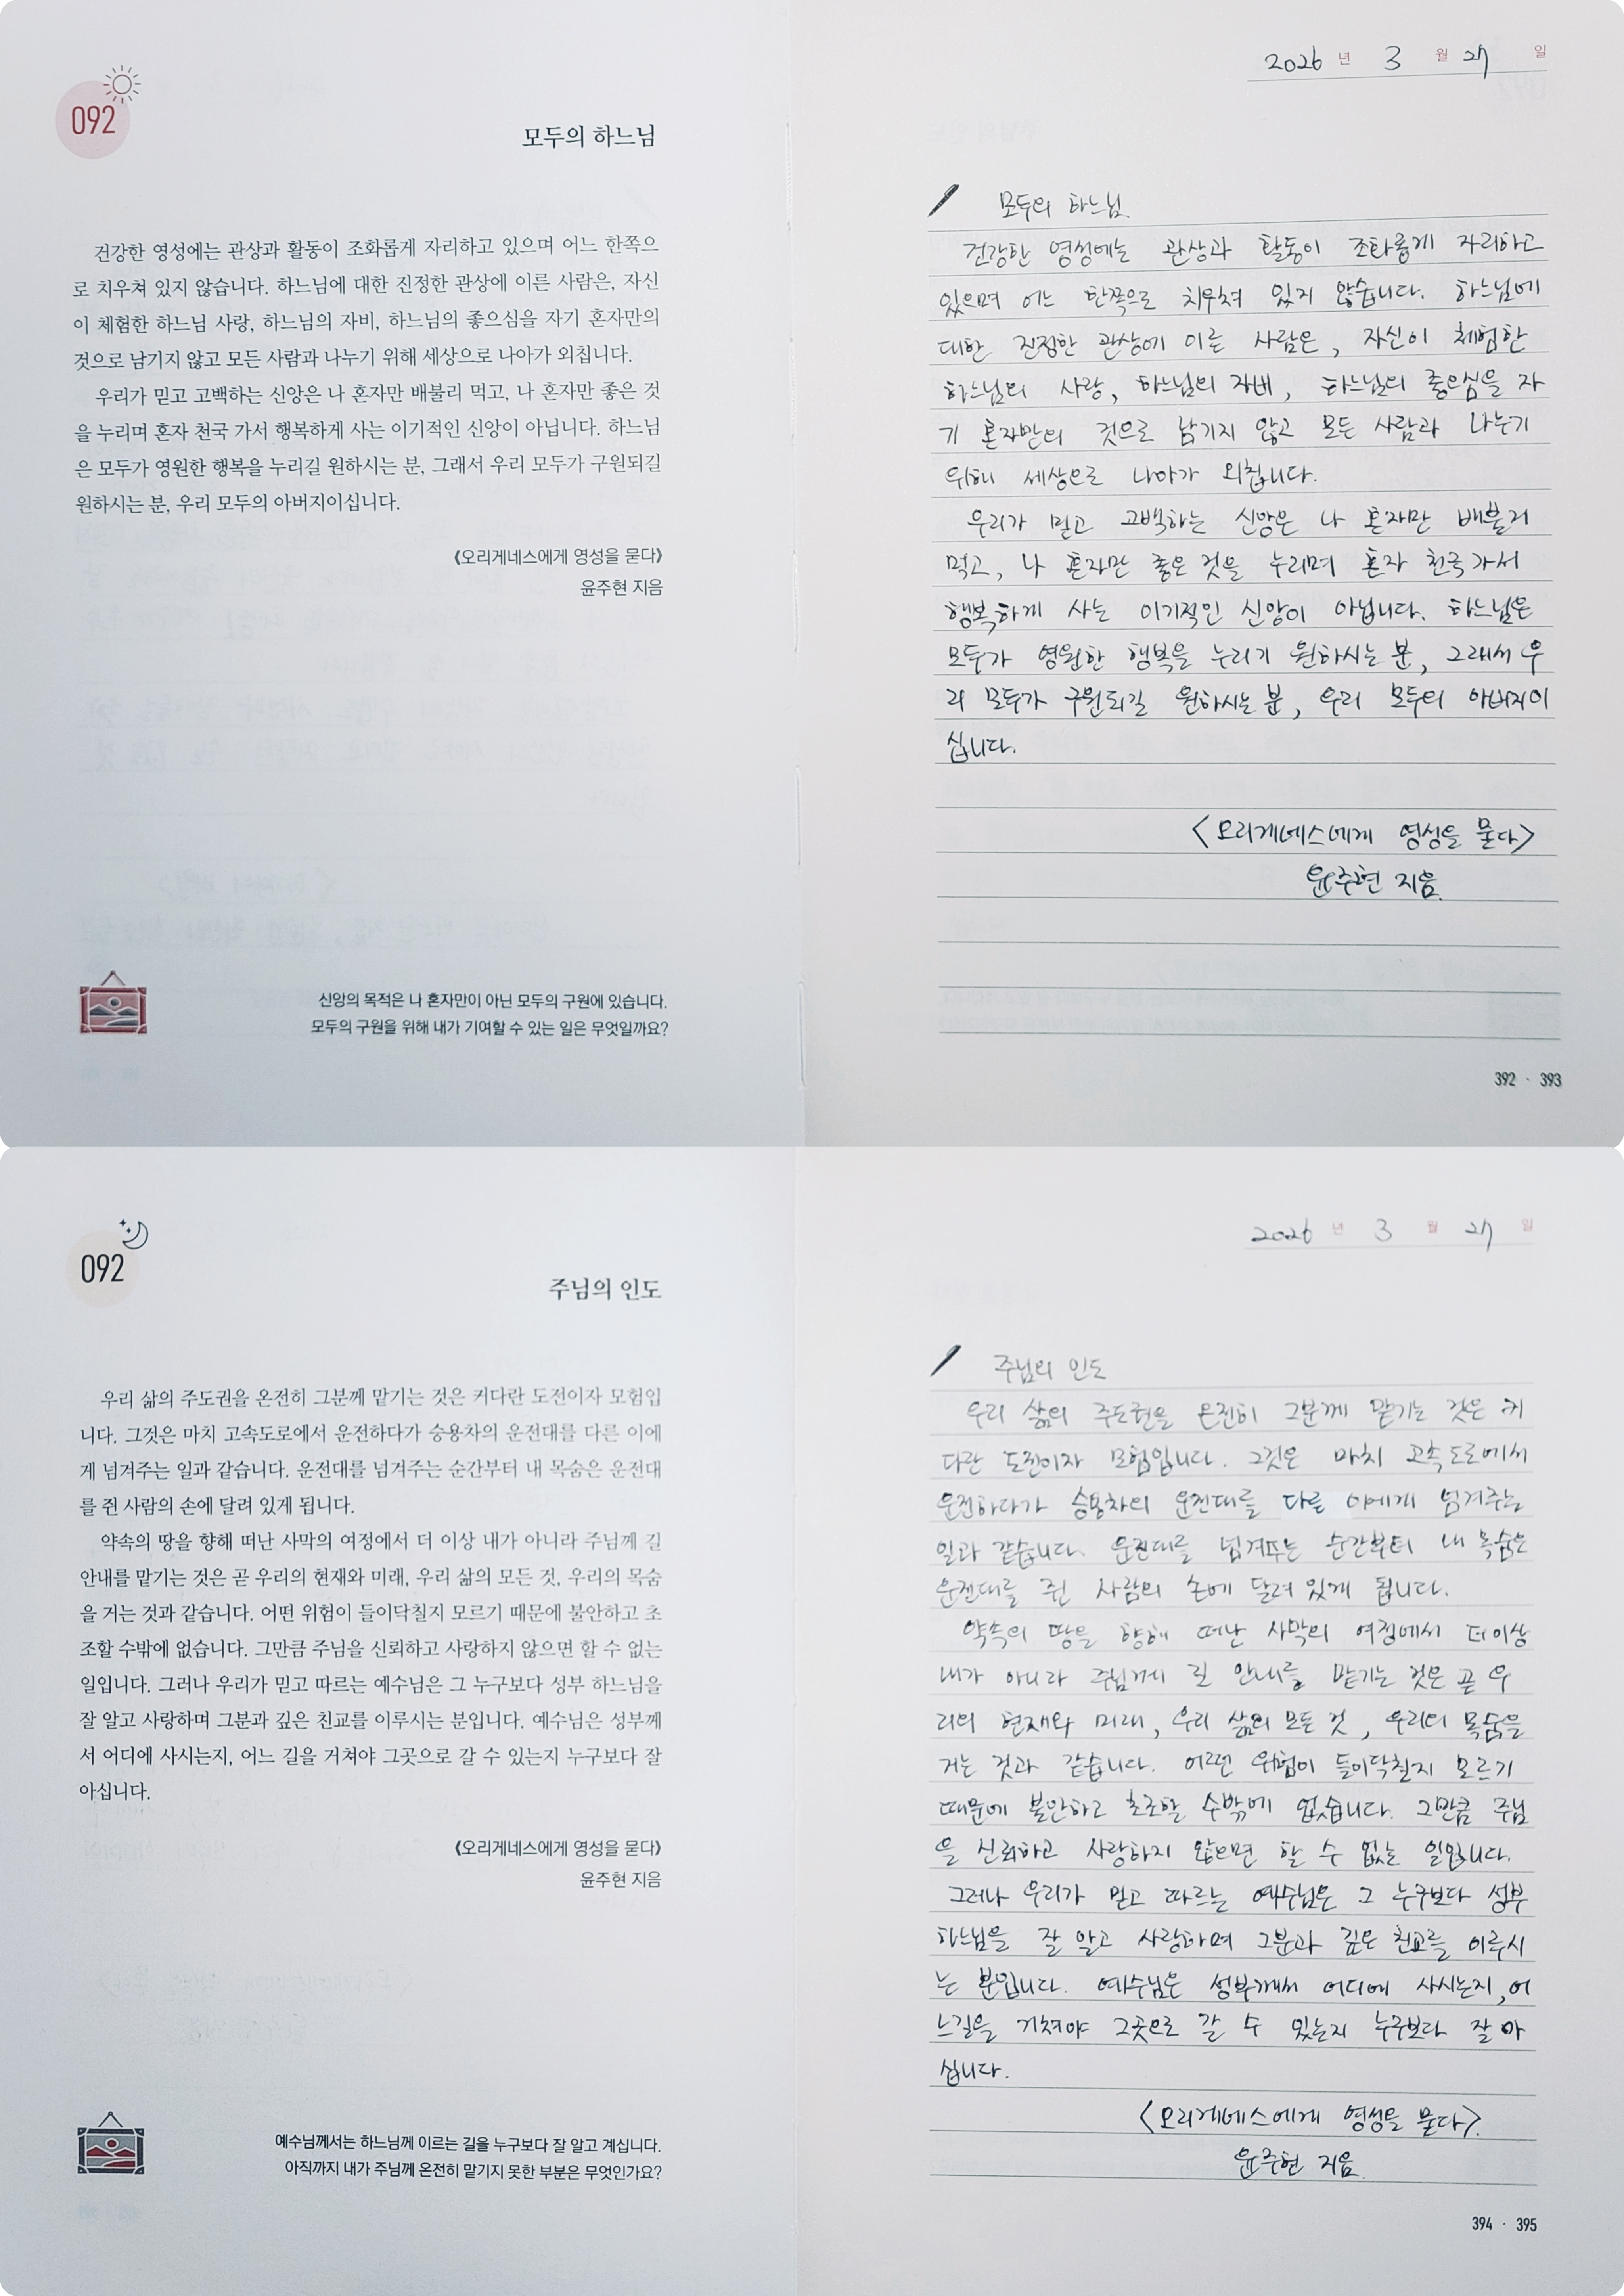 092
모두의 하느님
건강한 영성에는 관상과 활동이 조화롭게 자리하고 있으며 어느 한쪽으
로 치우쳐 있지 않습니다. 하느님에 대한 진정한 관상에 이른 사람은, 자신
이 체험한 하느님 사랑, 하느님의 자비, 하느님의 좋으심을 자기 혼자만의
것으로 남기지 않고 모든 사람과 나누기 위해 세상으로 나아가 외칩니다.
우리가 믿고 고백하는 신앙은 나 혼자만 배불리 먹고, 나 혼자만 좋은 것
을 누리며 혼자 천국 가서 행복하게 사는 이기적인 신앙이 아닙니다. 하느님
은 모두가 영원한 행복을 누리길 원하시는 분, 그래서 우리 모두가 구원되길
원하시는 분, 우리 모두의 아버지이십니다.
《오리게네스에게 영성을 묻다》
윤주현 지음
신앙의 목적은 나 혼자만이 아닌 모두의 구원에 있습니다.
모두의 구원을 위해 내가 기여할 수 있는 일은 무엇일까요?
2026 년 3 월 27 일
모두의 하느님
건강한 영성에는 관상과 활동이 조화롭게 자리하고
있으며 어느 한쪽으로 치우쳐 있지 않습니다. 하느님에
대한 진정한 관상에 이른 사람은, 자신이 체험한
하느님의 사랑, 하느님의 자비, 하느님의 좋으심을 자
기 혼자만의 것으로 남기지 않고 모든 사람과 나누기
위해 세상으로 나아가 외칩니다.
우리가 믿고 고백하는 신앙은 나 혼자만 배불리
먹고, 나 혼자만 좋은 것을 누리며 혼자 천국 가서
행복하게 사는 이기적인 신앙이 아닙니다. 하느님은
모두가 영원한 행복을 누리기 원하시는 분, 그래서 우
리 모두가 구원되길 원하시는 분, 우리 모두의 아버지이
십니다.
<오리게네스에게 영성을 묻다>
윤주현 지음
392 · 393
092
주님의 인도
우리 삶의 주도권을 온전히 그분께 맡기는 것은 커다란 도전이자 모험입
니다. 그것은 마치 고속도로에서 운전하다가 승용차의 운전대를 다른 이에
게 넘겨주는 일과 같습니다. 운전대를 넘겨주는 순간부터 내 목숨은 운전대
를 쥔 사람의 손에 달려 있게 됩니다.
약속의 땅을 향해 떠난 사막의 여정에서 더 이상 내가 아니라 주님께 길
안내를 맡기는 것은 곧 우리의 현재와 미래, 우리 삶의 모든 것, 우리의 목숨
을 거는 것과 같습니다. 어떤 위험이 들이닥칠지 모르기 때문에 불안하고 초
조할 수밖에 없습니다. 그만큼 주님을 신뢰하고 사랑하지 않으면 할 수 없는
일입니다. 그러나 우리가 믿고 따르는 예수님은 그 누구보다 성부 하느님을
잘 알고 사랑하며 그분과 깊은 친교를 이루시는 분입니다. 예수님은 성부께
서 어디에 사시는지, 어느 길을 거쳐야 그곳으로 갈 수 있는지 누구보다 잘
아십니다.
《오리게네스에게 영성을 묻다》
윤주현 지음
예수님께서는 하느님께 이르는 길을 누구보다 잘 알고 계십니다.
아직까지 내가 주님께 온전히 맡기지 못한 부분은 무엇인가요?
2026 년 3 월 27 일
주님의 인도
우리 삶의 주도권을 온전히 그분께 맡기는 것은 커
다란 도전이자 모험입니다. 그것은 마치 고속도로에서
운전하다가 승용차의 운전대를 다른 이에게 넘겨주는
일과 같습니다. 운전대를 넘겨주는 순간부터 내 목숨은
운전대를 쥔 사람의 손에 달려 있게 됩니다.
약속의 땅을 향해 떠난 사막의 여정에서 더이상
내가 아니라 주님께 길 안내를 맡기는 것은 곧 우
리의 현재와 미래, 우리 삶의 모든 것, 우리의 목숨을
거는 것과 같습니다. 어떤 위험이 들이닥칠지 모르기
때문에 불안하고 초조할 수밖에 없습니다. 그만큼 주님
을 신뢰하고 사랑하지 않으면 할 수 없는 일입니다.
그러나 우리가 믿고 따르는 예수님은 그 누구보다 성부
하느님을 잘 알고 사랑하며 그분과 깊은 친교를 이루시
는 분입니다. 예수님은 성부께서 어디에 사시는지, 어
느길을 거쳐야 그곳으로 갈 수 있는지 누구보다 잘 아
십니다.
<오리게네스에게 영성을 묻다>.
윤주현 지음
394 · 395